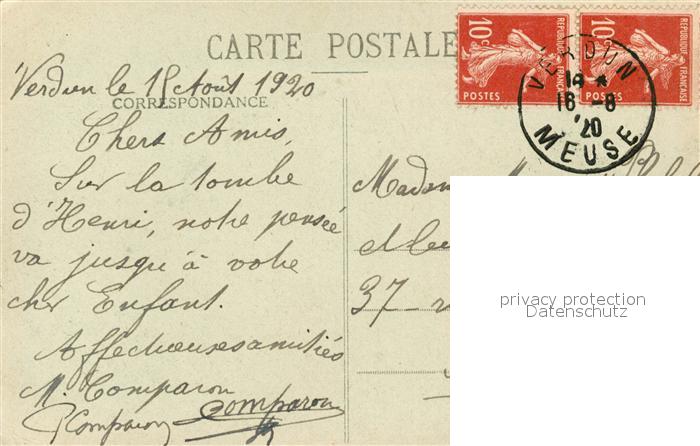 CARTE POSTALE
10c
POSTES
REPUBLIQUE FRANÇAISE
10c
POSTES
REPUBLIQUE FRANÇAISE
VERDUN
16 -8
'20
MEUSE
Verdun le 15 Août 1920
CORRESPONDANCE
Chers Amis,
Sur la tombe
d'Henri, notre pensée
va jusqu'à votre
cher Enfant.
Affectueuses amitiés
M. Comparon
Comparon Comparon
Madam
37
privacy protection
Datenschutz